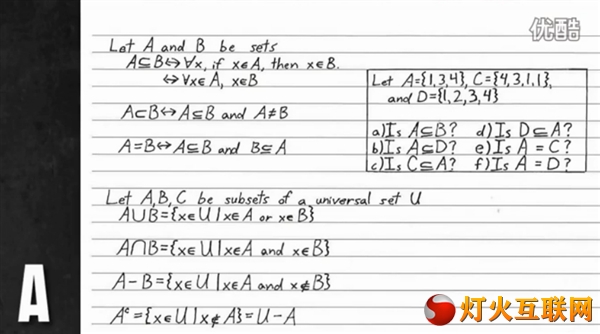 优酷
Let A and B be sets
A⊆B⟷∀x, if x∈A, then x∈B.
⟷∀x∈A, x∈B
A⊂B⟷A⊆B and A≠B
A=B⟷A⊆B and B⊆A
Let A={1,3,4}, C={4,3,1,1},
and D={1,2,3,4}
a) Is A⊆B? d) Is D⊆A?
b) Is A⊆D? e) Is A = C?
c) Is C⊆A? f) Is A = D?
Let A,B,C be subsets of a universal set U
A∪B={x∈U|x∈A or x∈B}
A∩B={x∈U|x∈A and x∈B}
A-B={x∈U|x∈A and x∉B}
Aᶜ={x∈U|x∉A}=U-A
A
灯火互联网